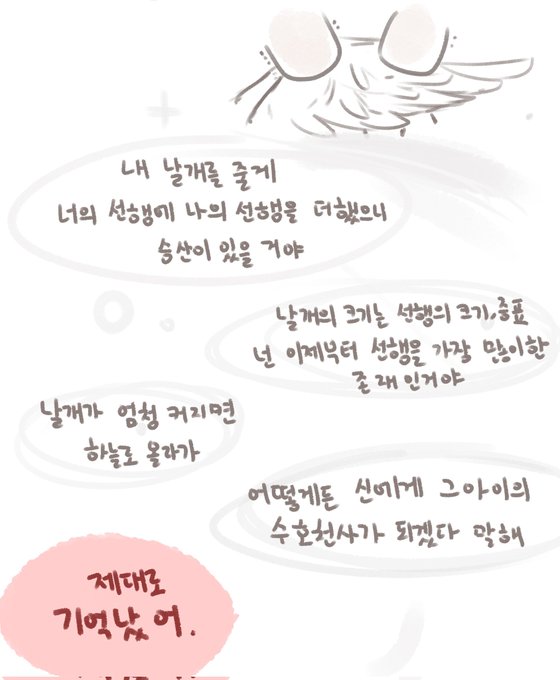 내 날개를 줄게
너의 선행에 나의 선행을 더했으니
승산이 있을 거야
날개의 크기는 선행의 크기, 증표
넌 이제부터 선행을 가장 많이 한
존재인거야
날개가 엄청 커지면
하늘로 올라가
어떻게든 신에게 그 아이의
수호천사가 되겠다 말해
제대로
기억났어.